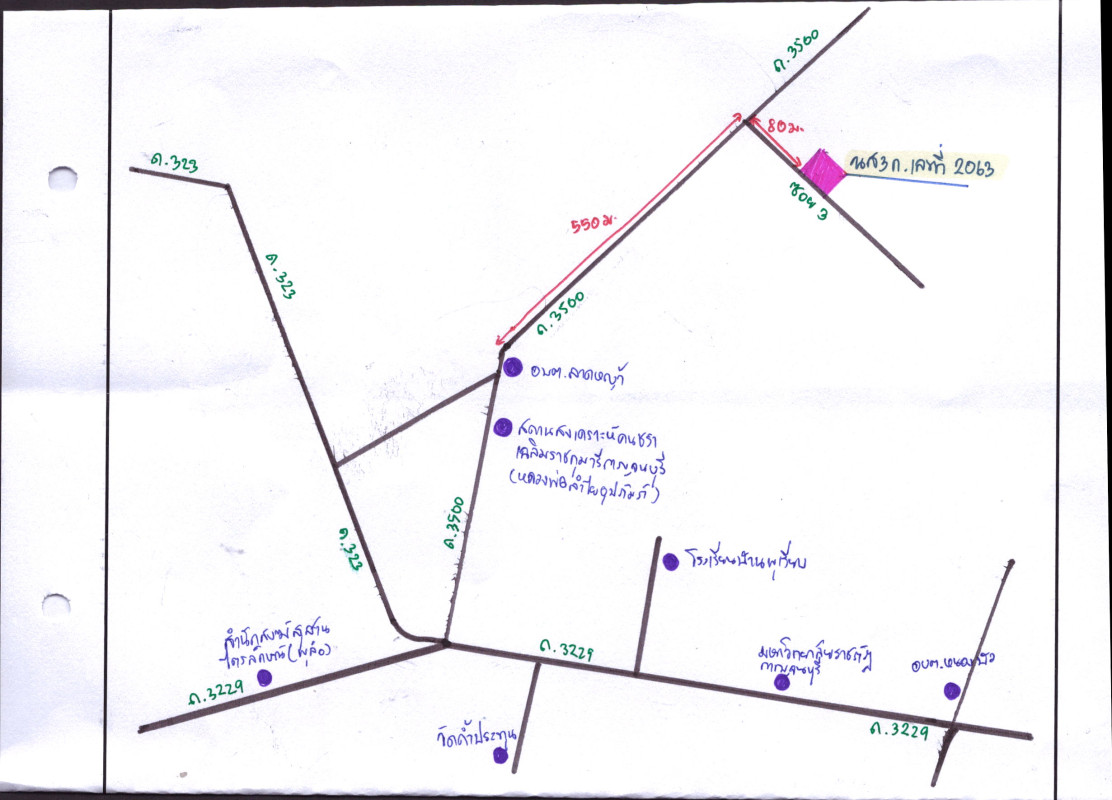 ถ.3500
80ม.
ถ.323
นส3ก.เลขที่ 2063
ซอย 3
550ม.
ถ.323
ถ.3500
อบต.ลาดหญ้า
สถานสงเคราะห์คนชรา
เฉลิมราชกุมารีกาญจนบุรี
(หลวงพ่อลำใยอุปถัมภ์)
ถ.3500
ถ.323
โรงเรียนบ้านพุเลียบ
สำนักสงฆ์สุสาน
ไตรลักษณ์
ถ.3229
มหาวิทยาลัยราชภัฏ
กาญจนบุรี
อบต.หนองบัว
ถ.3229
ถ.3229
วัดถ้ำประทุน